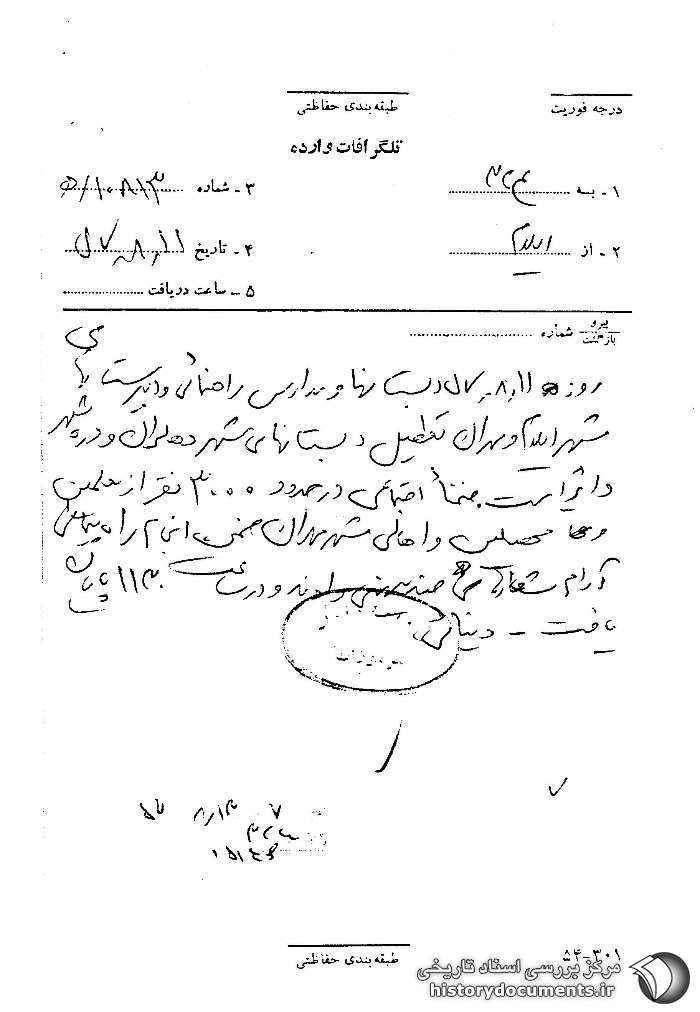 درجه فوریت
طبقه‌بندی حفاظتی
تلگرافات وارده
۱ - به ۳۲۳
۳ - شماره ۱۰۸۱۳/ه
۲ - از ایلام
۴ - تاریخ ۵۷٫۸٫۱۱
۵ - ساعت دریافت
پیرو
بازگشت شماره
روز ۵۷٫۸٫۱۱ دبستانها و مدارس راهنمائی و دبیرستانهای
شهر ایلام و مهران تعطیل دبستانهای شهر دهلران و دره شهر
دائر است ضمناً اجتماعی در حدود ۳۰۰۰ نفر از معلمین
و محصلین و اهالی شهر مهران ضمن راه پیمائی
آرام شعارهای ضد میهنی دادند و در ساعت ۱۱۳۰ پایان
یافت -
۷
۵۷ ۸/۱۳
۳۲۲
۵۴-۳۰۱
طبقه‌بندی حفاظتی
مرکز بررسی اسناد تاریخی
historydocuments.ir